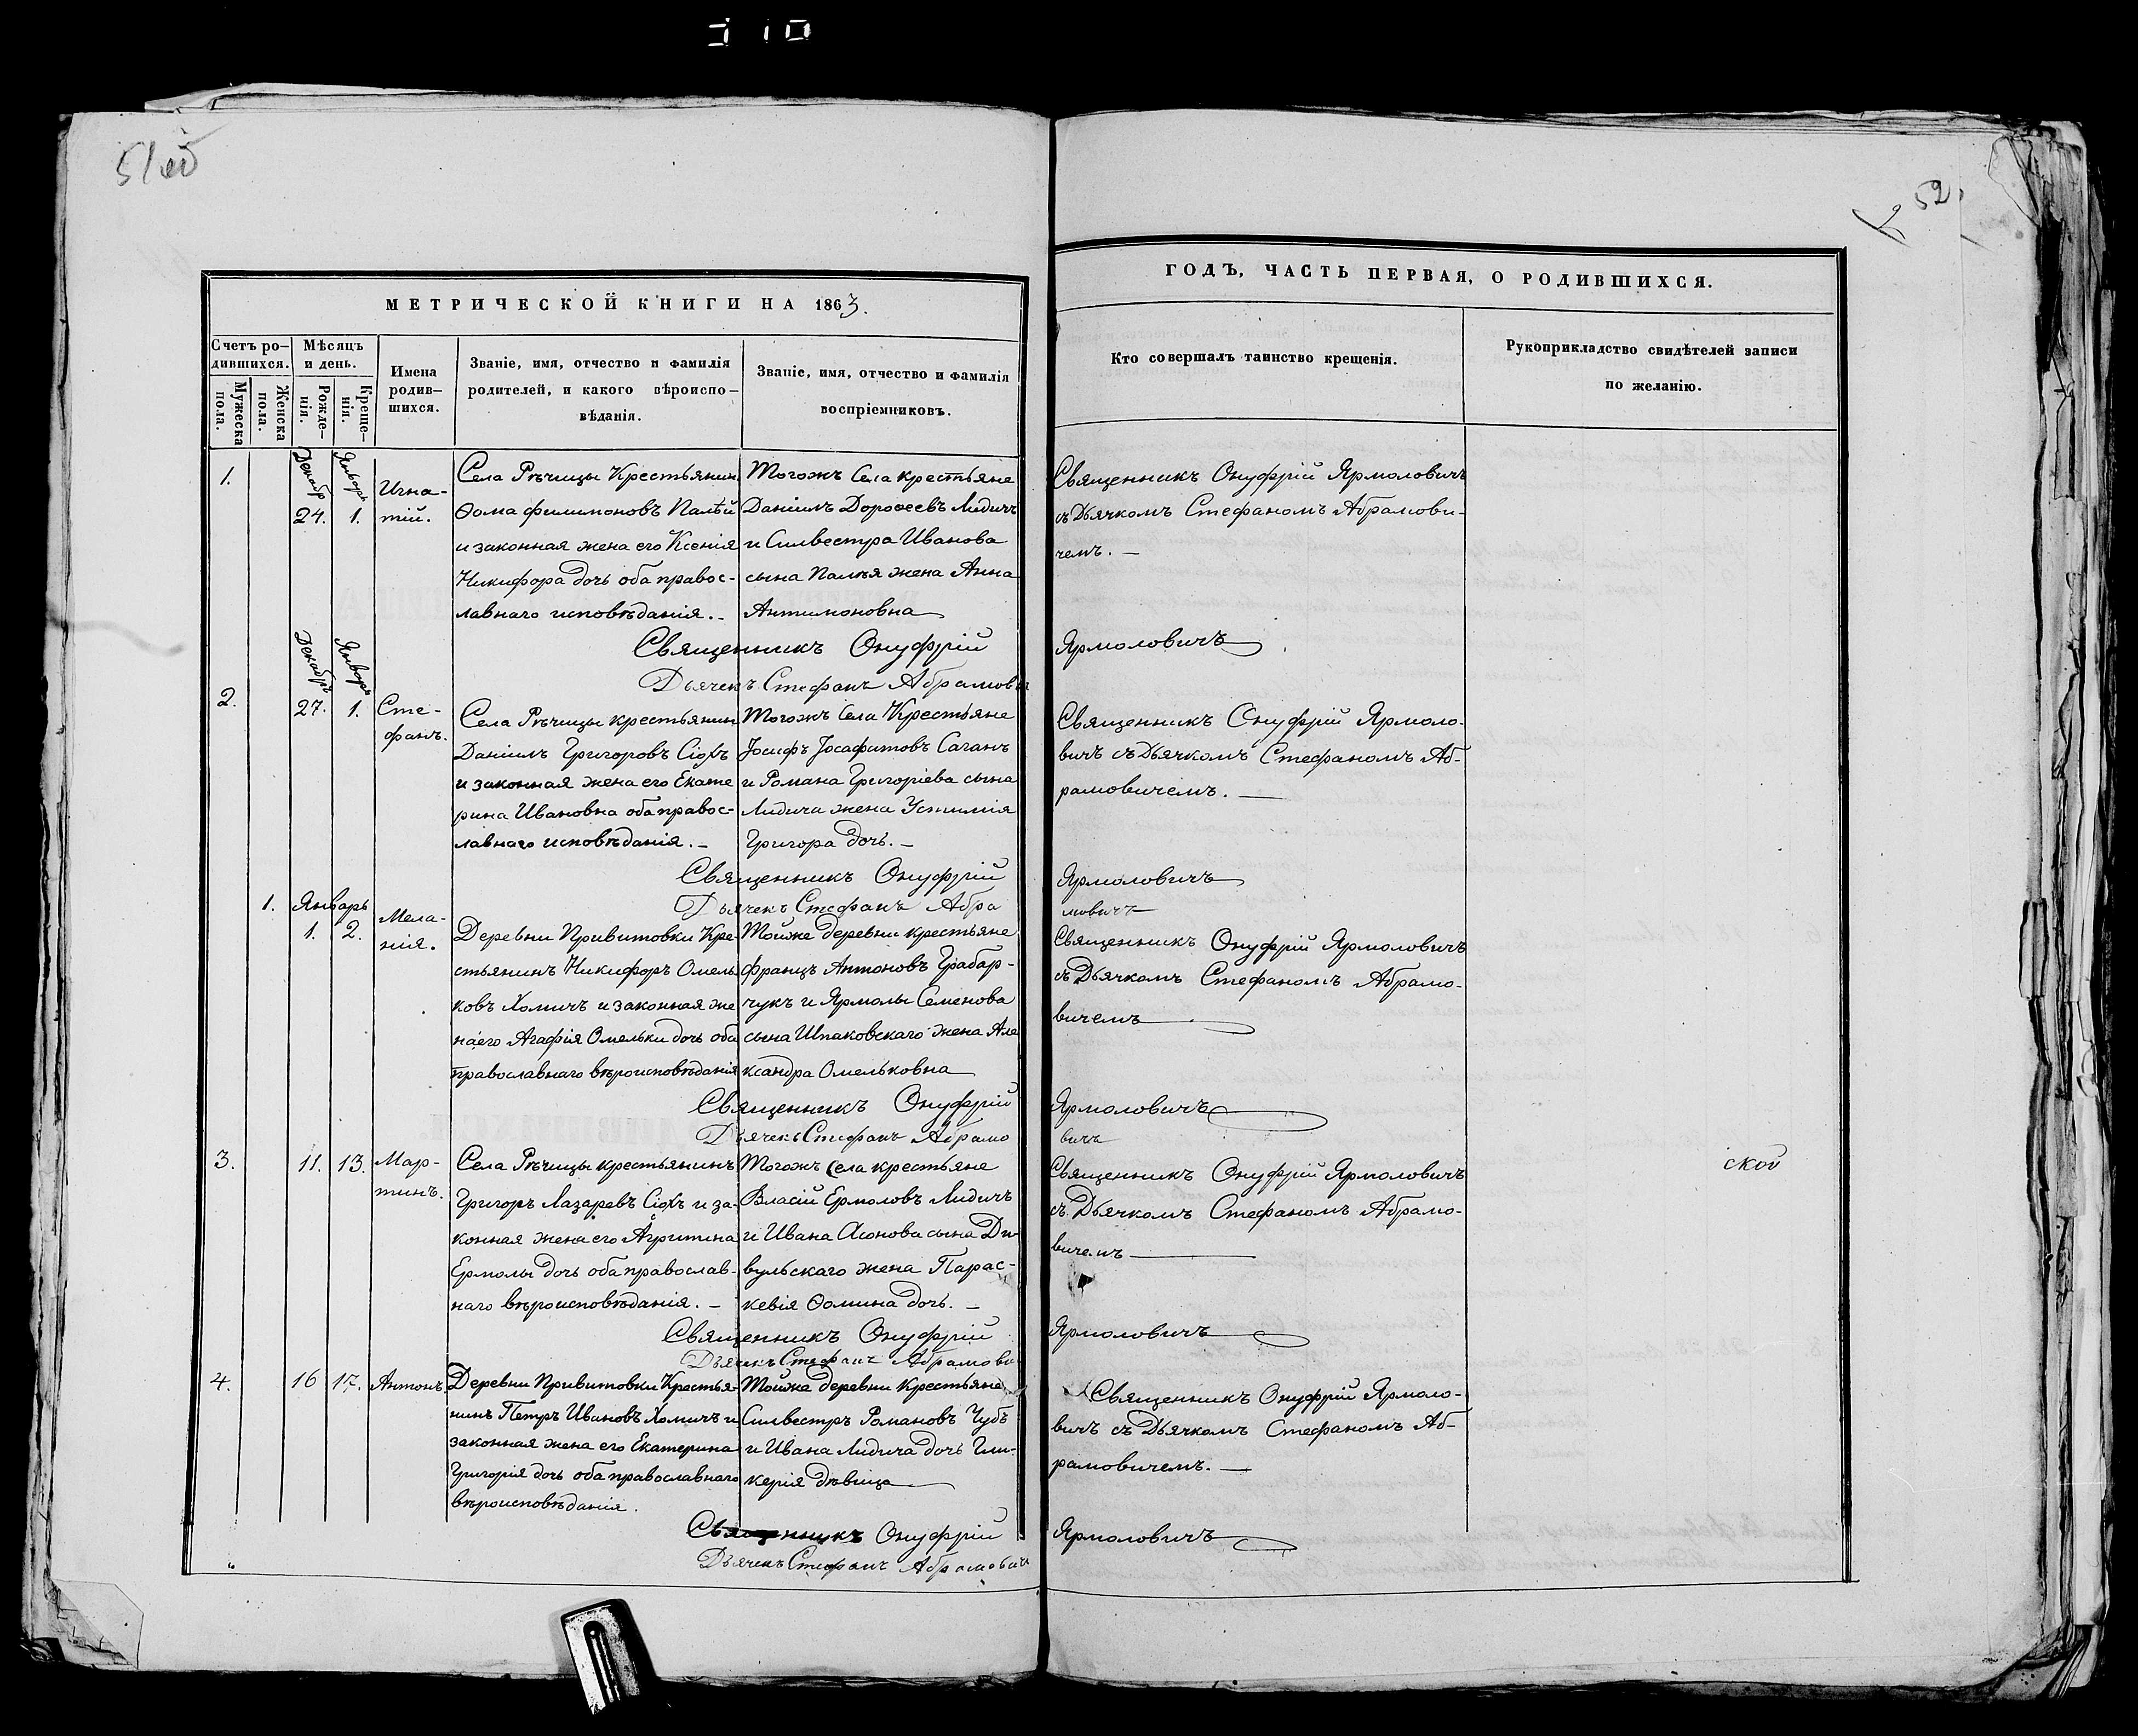 51 об
52.
МЕТРИЧЕСКОЙ КНИГИ НА 1863.
ГОДЪ, ЧАСТЬ ПЕРВАЯ, О РОДИВШИХСЯ.
Счетъ ро-
дившихся.
Мужеска
пола.
Женска
пола.
Мѣсяцъ
и день.
Рожде-
нія.
Креще-
нія.
Имена
родив-
шихся.
Званіе, имя, отчество и фамилія
родителей, и какого вѣроиспо-
вѣданія.
Званіе, имя, отчество и фамилія
воспріемниковъ.
Кто совершалъ таинство крещенія.
Рукоприкладство свидѣтелей записи
по желанію.
1.
Декабр
24.
Январь
1.
Игна-
тій.
Села Рѣчицы Крестьянин
Ѳома Филимоновъ Палѣй
и законная жена его Ксенія
Никифора дочь оба правос-
лавнаго исповѣданія.-
Тогожъ Села крестьяне
Даніилъ Дороѳеевъ Лидичъ
и Силвестра Иванова
сына Палѣя жена Анна
Антимоновна
Священникъ Онуфрій Ярмоловичъ
съ Дьячкомъ Стефаномъ Абрамови-
чемъ.-
Священникъ Онуфрій Ярмоловичъ
Дьячекъ Стефанъ Абрамови
2.
Декабрь
27.
Январь
1.
Сте-
фанъ.
Села Рѣчицы крестьянин
Даніилъ Григоровъ Сіохъ
и законная жена его Екате
рина Ивановна оба правос-
лавнаго исповѣданія.-
Тогожъ Села Крестьяне
Іосифъ Іосафатовъ Саганъ
и Романа Григоріева сына
Лидича жена Устимія
Григора дочь.-
Священникъ Онуфрій Ярмоло-
вичъ съ Дьячкомъ Стефаномъ Аб-
рамовичемъ.-
Священникъ Онуфрій Ярмоловичъ
Дьячекъ Стефанъ Абра мовичъ
1.
Январь
1.
2.
Мела-
нія.
Деревни Привитовки Кре-
стьянинъ Никифоръ Омель
ковъ Хомичъ и законная же
на его Агафія Омельки дочь оба
православнаго вѣроисповѣданія
Тойже деревни крестьяне
Францъ Антоновъ Грабар-
чукъ и Ярмолы Семенова
сына Шпаковскаго жена Але
ксандра Омельковна
Священникъ Онуфрій Ярмоловичъ
съ Дьячкомъ Стефаномъ Абрамо-
вичемъ
Священникъ Онуфрій Ярмоловичъ
Дьячекъ Стефанъ Абрамо вичъ
3.
11.
13.
Мар-
тинъ.
Села Рѣчицы крестьянинъ
Григоръ Лазаревъ Сіохъ и за-
конная жена его Агрипина
Ермолы дочь оба православ-
наго вѣроисповѣданія.-
Тогожъ Села крестьяне
Власій Ермоловъ Лидичъ
и Ивана Асонова сына Ди
вульскаго жена Парас-
кевія Ѳомина дочь.-
Священникъ Онуфрій Ярмоловичъ
съ Дьячкомъ Стефаномъ Абрамо-
вичемъ
ской
Священникъ Онуфрій Ярмоловичъ
Дьячекъ Стефанъ Абрамови
4.
16
17.
Антонъ
Деревни Привитовки Крестья-
нинъ Петръ Ивановъ Хомичъ и
законная жена его Екатерина
Григорія дочь оба православнаго
вѣроисповѣданія.
Тойже деревни Крестьяне
Силвестръ Романовъ Чубъ
и Ивана Лидича дочь Гли-
керія дѣвица
Священникъ Онуфрій Ярмоло-
вичъ съ Дьячкомъ Стефаномъ Аб-
рамовичемъ.-
Священникъ Онуфрій Ярмоловичъ
Дьячекъ Стефанъ Абрамовичъ